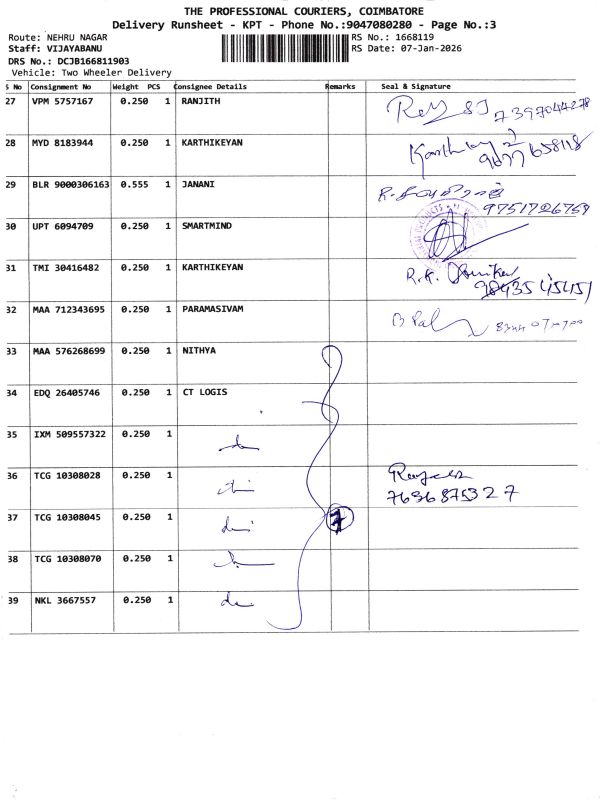 THE PROFESSIONAL COURIERS, COIMBATORE
Delivery Runsheet - KPT - Phone No.:9047080280 - Page No.:3
Route: NEHRU NAGAR
RS No.: 1668119
Staff: VIJAYABANU
RS Date: 07-Jan-2026
DRS No.: DCJB166811903
Vehicle: Two Wheeler Delivery
S No Consignment No Weight PCS Consignee Details Remarks Seal & Signature
27 VPM 5757167 0.250 1 RANJITH 7397044278
28 MYD 8183944 0.250 1 KARTHIKEYAN 9677658118
29 BLR 9000306163 0.555 1 JANANI 9751726759
30 UPT 6094709 0.250 1 SMARTMIND
31 TMI 30416482 0.250 1 KARTHIKEYAN R.K.
32 MAA 712343695 0.250 1 PARAMASIVAM
33 MAA 576268699 0.250 1 NITHYA
34 EDQ 26405746 0.250 1 CT LOGIS
35 IXM 509557322 0.250 1
36 TCG 10308028 0.250 1 7636875327
37 TCG 10308045 0.250 1 7
38 TCG 10308070 0.250 1
39 NKL 3667557 0.250 1